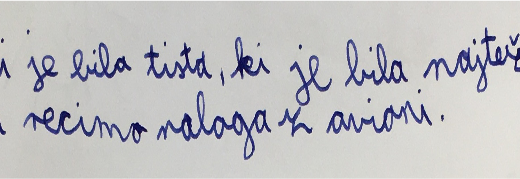 i je bila tista, ki je bila najtež
recimo naloga z avioni.